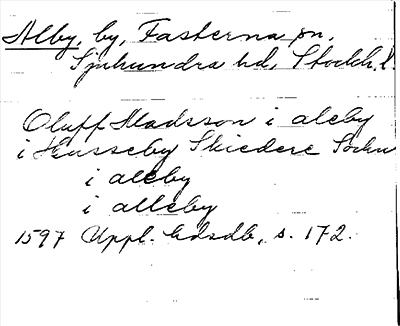 Alby, by, Fasterna sn,
Sjuhundra hd, Stockh. l.
Oluff Madsson i aleby
i Husseby Skiedere Sockn
i aleby
i alleby
1597 Uppl. hdsdb, s. 172.